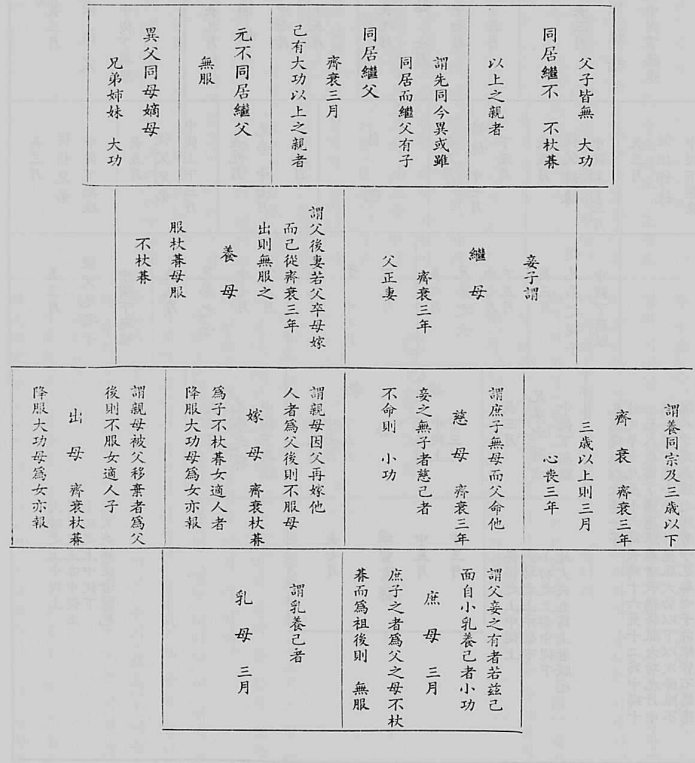 父子皆無 大功
同居繼不 不杖朞
以上之親者
謂先同今異或雖
同居而繼父有子
同居繼父
齊衰三月
己有大功以上之親者
元不同居繼父
無服
異父同母嫡母
兄弟姉妹 大功
妾子謂
繼母
齊衰三年
父正妻
謂父後妻若父卒母嫁
而己從齊衰三年
出則無服之
養母
服杖朞母服
不杖朞
謂養同宗及三歲以下
齊衰 齊衰三年
三歲以上則三月
心喪三年
謂庶子無母而父命他
慈母 齊衰三年
妾之無子者慈己者
不命則 小功
謂親母因父再嫁他
人者爲父後則不服母
嫁母 齊衰杖朞
爲子不杖朞女適人者
降服大功母爲女亦報
謂親母被父移棄者爲父
後則不服女適人子
出母 齊衰杖朞
降服大功母爲女亦報
謂父妾之有者若玆己
面自小乳養己者小功
庶母 三月
庶子之者爲父之母不杖
朞而爲祖後則 無服
謂乳養己者
乳母 三月